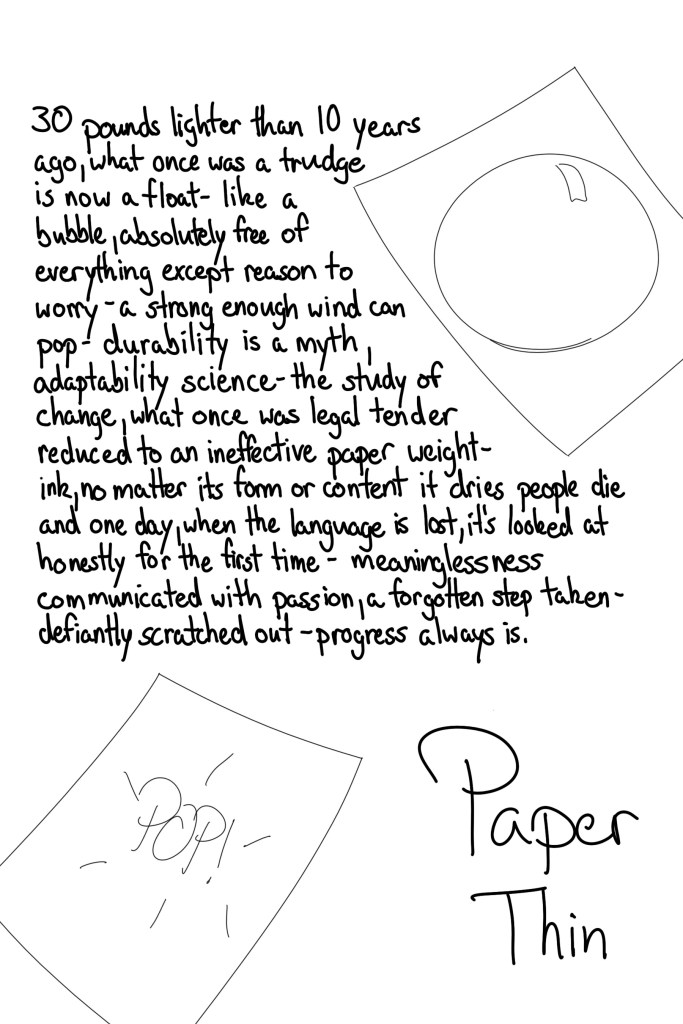 30 pounds lighter than 10 years
ago, what once was a trudge
is now a float- like a
bubble, absolutely free of
everything except reason to
worry - a strong enough wind can
pop- durability is a myth,
adaptability science- the study of
change, what once was legal tender
reduced to an ineffective paper weight-
ink, no matter its form or content it dries people die
and one day, when the language is lost, it's looked at
honestly for the first time - meaninglessness
communicated with passion, a forgotten step taken-
defiantly scratched out - progress always is.
POP!
Paper
Thin